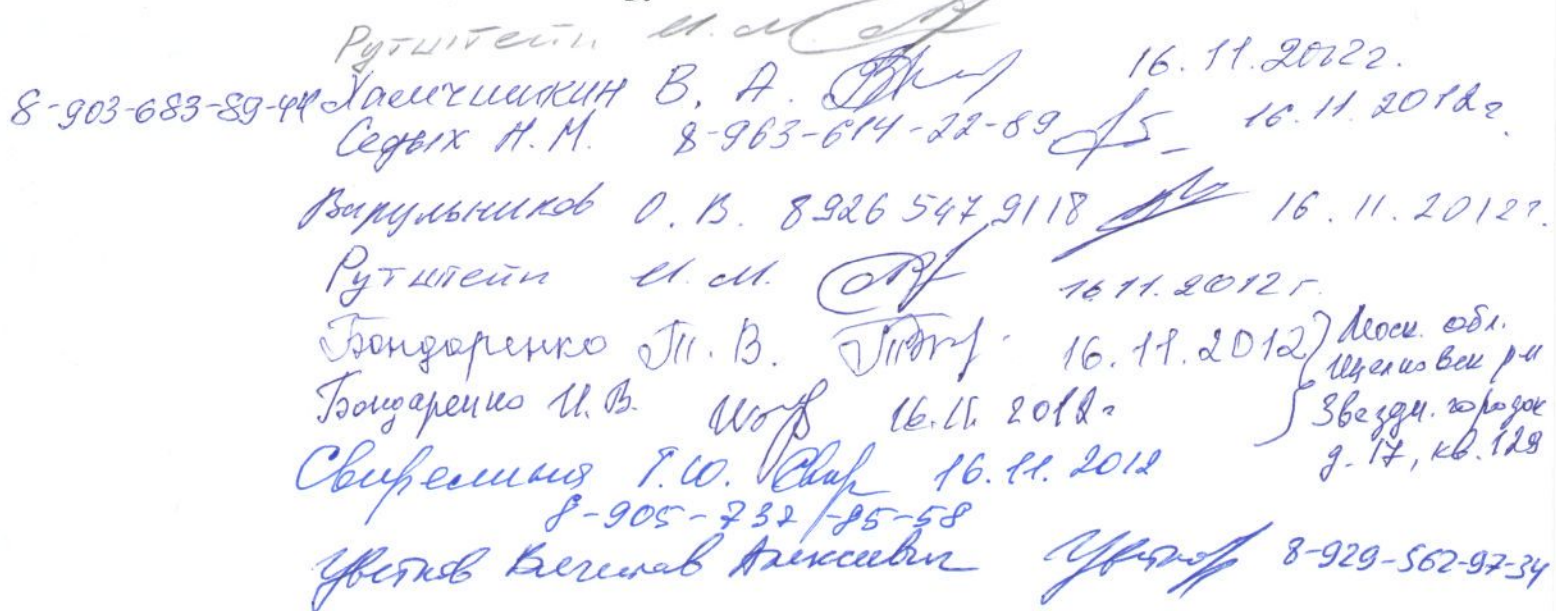 Рутштейн И. М.
8-903-683-89-44 Хамчишкин В. А. 16.11.2012г.
Седых Н.М. 8-963-614-22-89 16.11.2012г.
Варульников О. В. 8926 547 9118 16.11.2012г.
Рутштейн И. М. 16.11.2012г.
Бондаренко Т. В. 16.11.2012 Моск. обл.
Бондаренко И. В. 16.11.2012г Щелковск рн
Звездн. городок
д. 17, кв. 129
Т.Ю. Свир 16.11.2012
8-905-737-85-58
Цветков Вячеслав Алексеевич Цветков 8-929-562-97-34